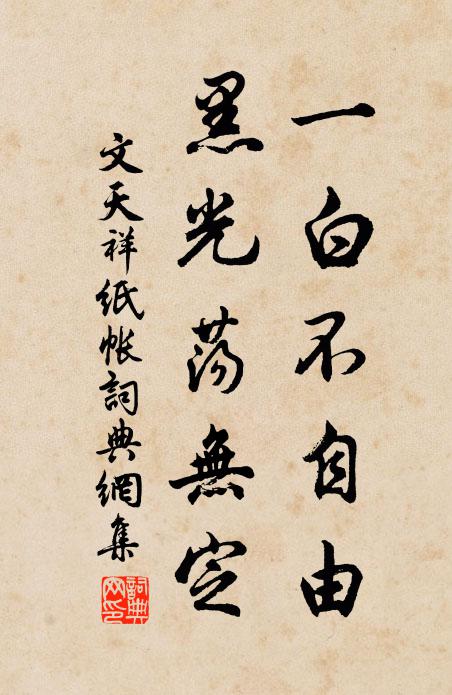 一白不自由
黑光荡無定
文天祥紙帐詞典網集
詞典网印